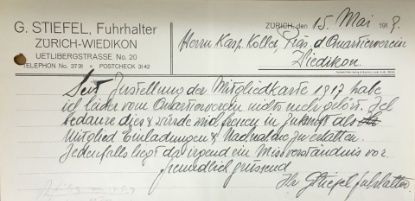 G. STIEFEL, Fuhrhalter
ZÜRICH-WIEDIKON
UETLIBERGSTRASSE No. 20
TELEPHON No. 3731 • POSTCHECK 3140
ZÜRICH, den 15. Mai 1918.
Herrn Kasp. Koller, Präs. d. Quartierverein
Wiedikon
Seit Zustellung der Mitgliedkarte 1917 habe
ich leider vom Quartierverein nichts mehr gehört. Ich
bedaure dies & würde mich freuen in Zukunft als
Mitglied Einladungen & Nachnahme zu erhalten.
Jedenfalls liegt da irgend ein Missverständnis vor.
freundlich grüssend
Ihr Stiefel Fuhrhalter